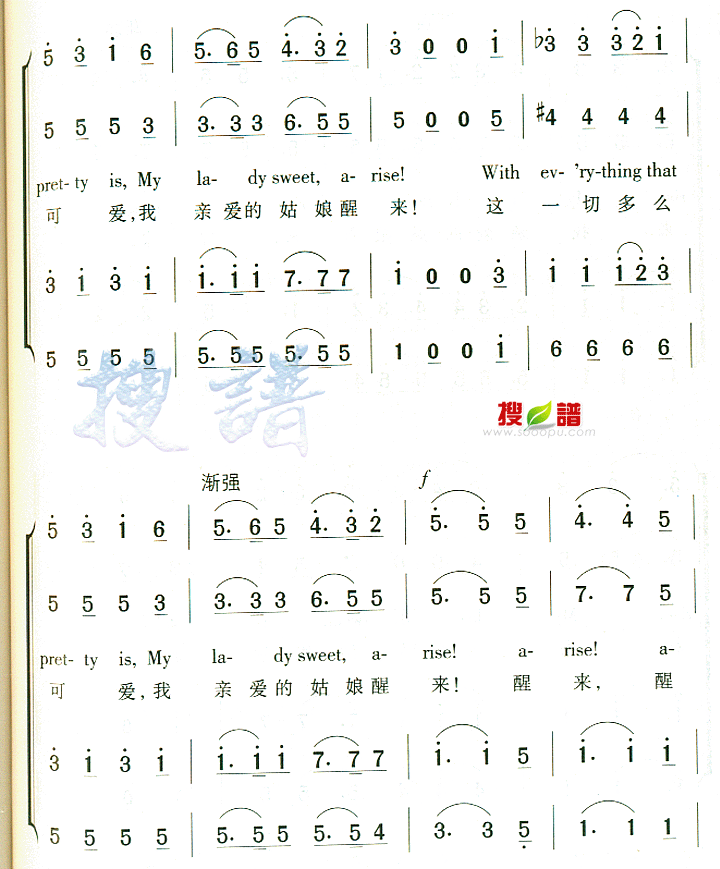 5 3 1 6 | 5. 6 5 4. 3 2 | 3 0 0 1 | ♭3 3 3 2 1
5 5 5 3 | 3. 3 3 6. 5 5 | 5 0 0 5 | #4 4 4 4
pret- ty is, My la- dy sweet, a- rise! With ev- 'ry-thing that
可 爱,我 亲 爱的 姑 娘醒 来! 这 一 切多么
3 1 3 1 | 1. 1 1 7. 7 7 | 1 0 0 3 | 1 1 1 2 3
5 5 5 5 | 5. 5 5 5. 5 5 | 1 0 0 1 | 6 6 6 6
搜譜
搜譜
www.sooopu.com
渐强 f
5 3 1 6 | 5. 6 5 4. 3 2 | 5. 5 5 | 4. 4 5
5 5 5 3 | 3. 3 3 6. 5 5 | 5. 5 5 | 7. 7 5
pret- ty is, My la- dy sweet, a- rise! a- rise! a-
可 爱,我 亲 爱的 姑 娘醒 来! 醒 来, 醒
3 1 3 1 | 1. 1 1 7. 7 7 | 1. 1 5 | 1. 1 1
5 5 5 5 | 5. 5 5 5. 5 4 | 3. 3 5 | 1. 1 1